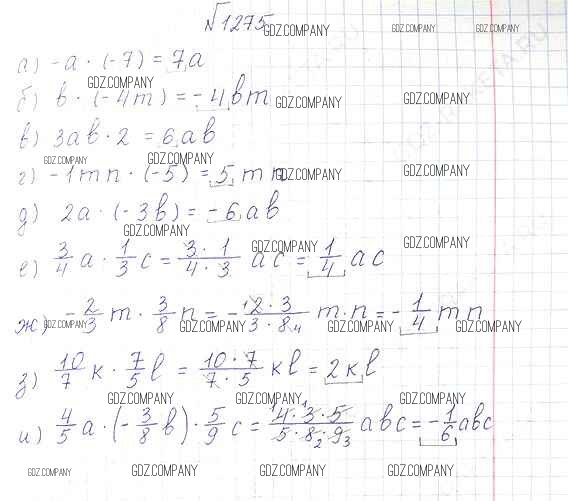 №1275
GDZ.COMPANY GDZ.COMPANY GDZ.COMPANY
а) -a · (-7) = 7a
GDZ.COMPANY
б) b · (-4m) = -4bm
GDZ.COMPANY GDZ.COMPANY
в) 3ab · 2 = 6ab
GDZ.COMPANY GDZ.COMPANY
г) -1mn · (-5) = 5mn
GDZ.COMPANY GDZ.COMPANY
д) 2a · (-3b) = -6ab
GDZ.COMPANY GDZ.COMPANY GDZ.COMPANY
е) 3/4 a · 1/3 c = 3·1/4·3 ac = 1/4 ac
ж) -2/3 m · 3/8 n = -2·3/3·8 m·n = -1/4 mn
GDZ.COMPANY GDZ.COMPANY GDZ.COMPANY GDZ.COMPANY
з) 10/7 k · 7/5 l = 10·7/7·5 kl = 2kl
GDZ.COMPANY GDZ.COMPANY GDZ.COMPANY
и) 4/5 a · (-3/8 b) · 5/9 c = 4·3·5/5·8·9 abc = -1/6 abc
GDZ.COMPANY GDZ.COMPANY GDZ.COMPANY GDZ.COMPANY